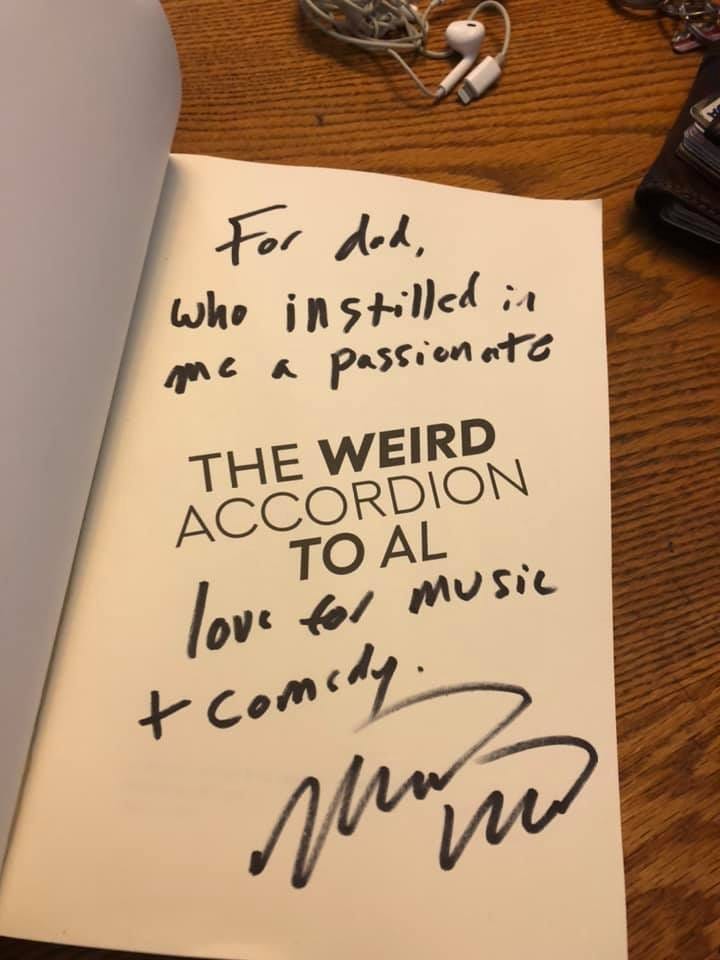 For dad,
who instilled in
me a passionate
THE WEIRD
ACCORDION
TO AL
love for music
+ comedy.